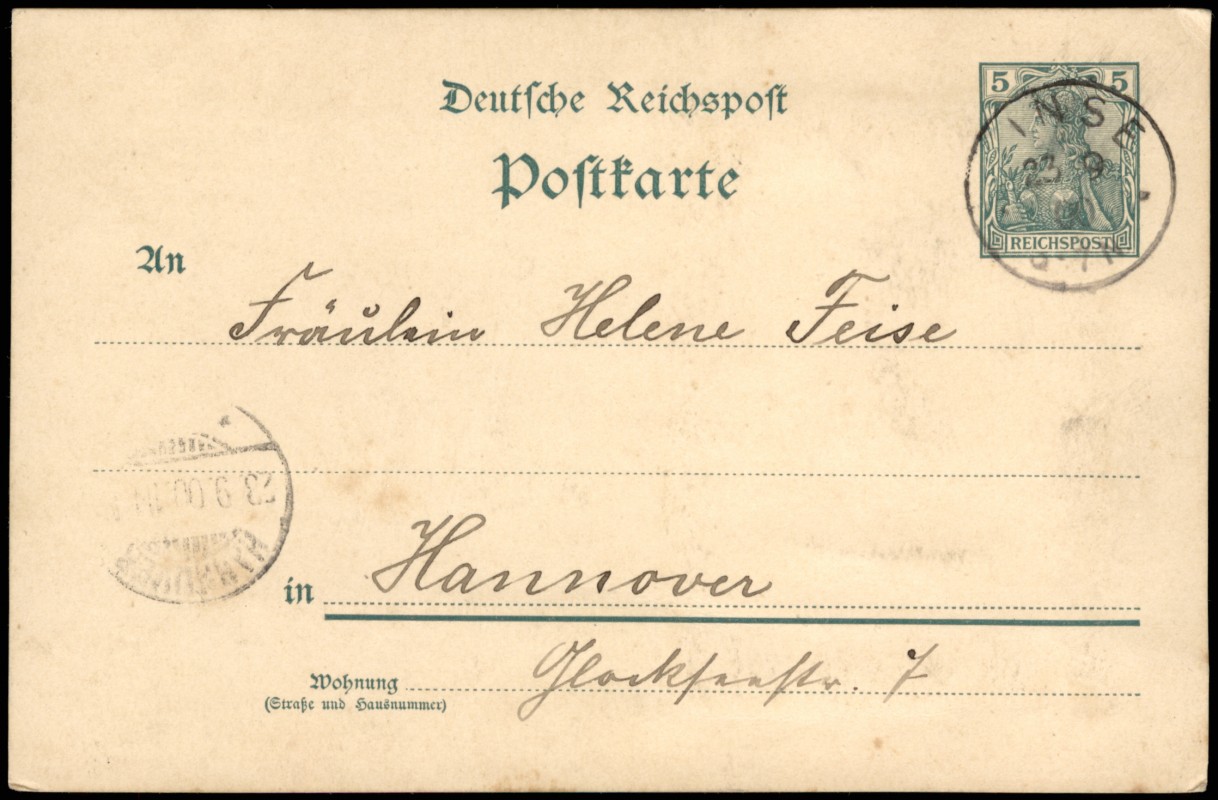 Deutsche Reichspost
Postkarte
5 5
REICHSPOST
INSE
23 9
An
Fräulein Helene Feise
23.9.00.
HANNOVER
in
Hannover
Glockseestr. 7
Wohnung
(Straße und Hausnummer)